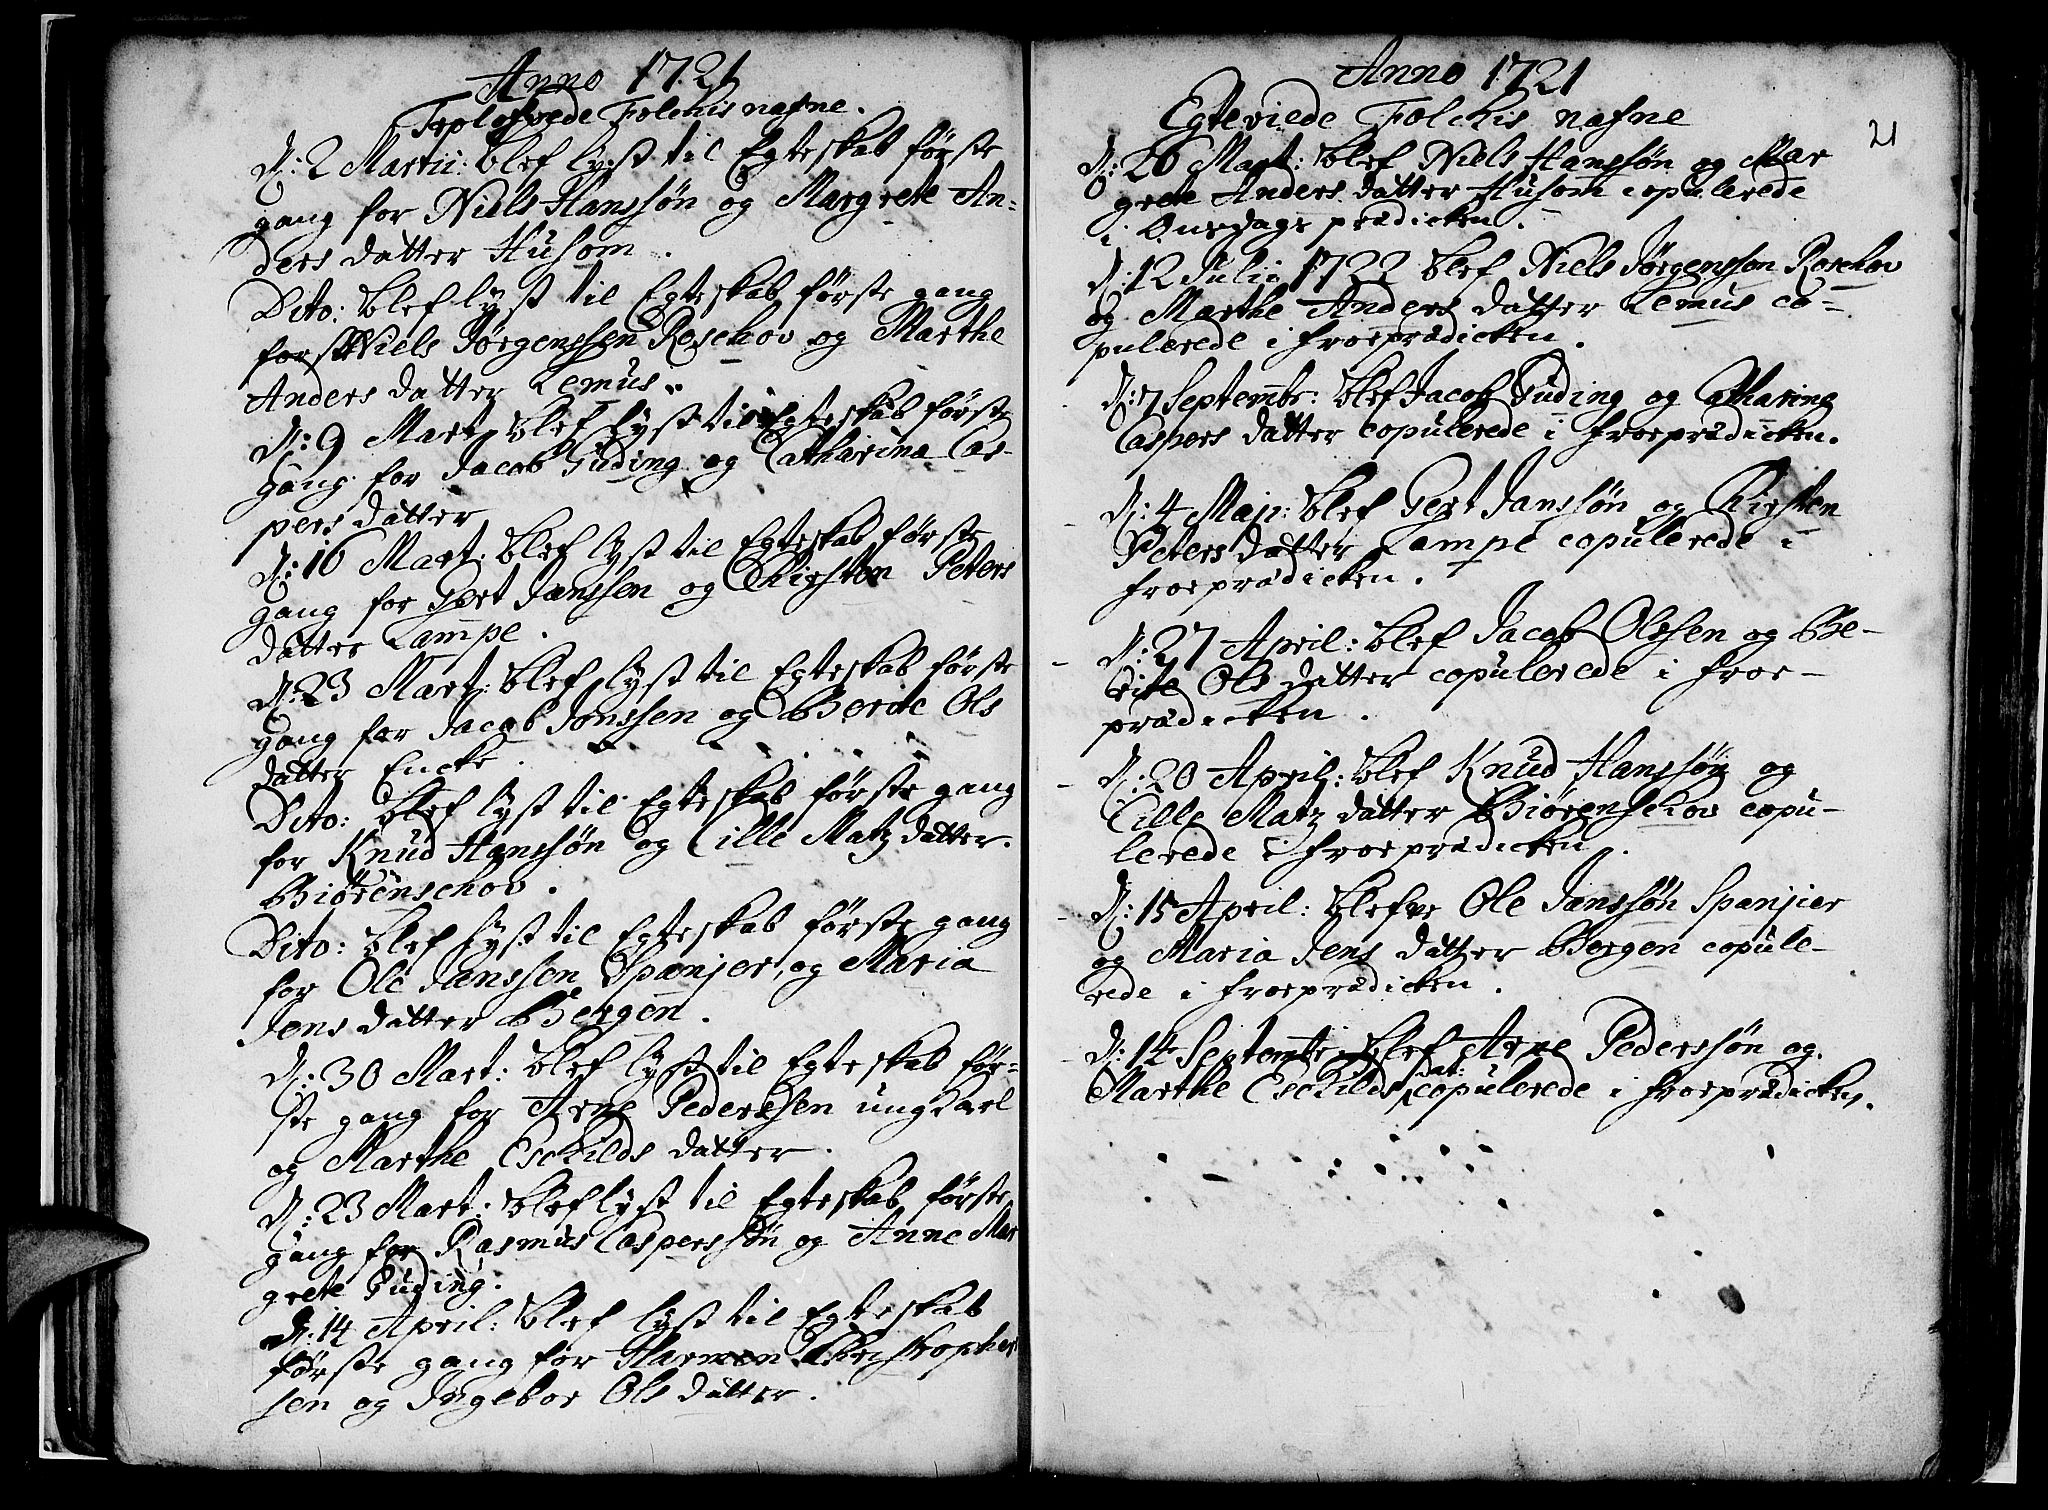 Anno 1721
Troplofvede Folckis nafne.
D: 2 Martii: blef lyst til Egteskab første
gang for Niels Hanssøn og Margrete An-
ders datter Husom.
Dito: blef lyst til Egteskab første gang
for Niels Jørgenssen Roschov og Marthe
Anders datter Lemus.
D: 9 Mart: blef lyst til Egteskab første
gang for Jacob Guding og Catharina Cas-
pers datter
D: 16 Mart: blef lyst til Egteskab første
gang for Gert Janssen og Kirsten Peters
datter Lampe.
D: 23 Mart: blef lyst til Egteskab første
gang for Jacob Jonssen og Berete Ols
datter Encke.
Dito: blef lyst til Egteskab første gang
for Knud Hanssøn og Cille Matz datter.
Biørenschov.
Dito: blef lyst til Egteskab første gang
for Ole Janssen Spanjer, og Maria
Jens datter Bergen.
D: 30 Mart: blef lyst til Egteskab før-
ste gang for Arne Pederssen ung Karl
og Marthe Eschilds datter.
D: 23 Mart: blef lyst til Egteskab første
gang for Rasmus Casperssøn og Anne Mar
grete Guding.
D: 14 April: blef lyst til Egteskab
første gang for Harmen Christopher
sen og Ingebor Ols datter.
Anno 1721
Egteviede Folckis nafne
21
D: 26 Mart: blef Niels Hanssøn og Mar
grete Anders datter Husom copulerede
i Onsdags prædicken.
D: 12 Julii 1722 blef Niels Jørgensson Roschov
og Marthe Anders datter Lemus co-
pulerede i froeprædicken.
D: 7 Septembr: blef Jacob Guding og Catharina
Caspers datter copulerede i froeprædicken.
D: 4 Maji: blef Gert Janssøn og Kirsten
Peters datter Lampe copulerede i
froeprædicken.
D: 27 April: blef Jacob Olssen og Be-
rite Ols datter copulerede i froe-
prædicken.
D: 20 April: blef Knud Hanssøn og
Cille Matz datter Biørenschov copu-
lerede i froeprædicken.
D: 15 April: blefve Ole Janssøn Spanjier
og Maria Jens datter Bergen copule-
rede i froeprædicken.
D: 14 Septembr: blef Arne Pederssøn og
Marthe Eschilds dat: copulerede i froeprædicken.